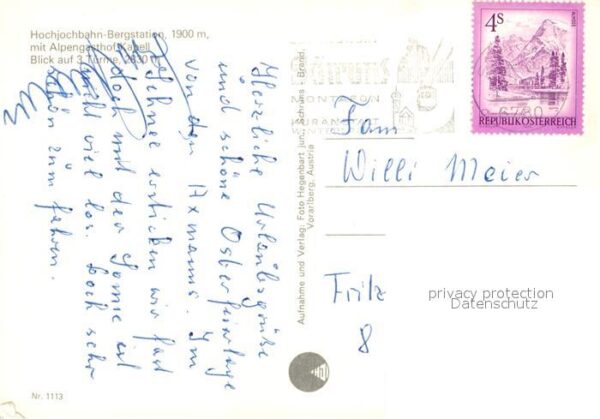 Hochjochbahn-Bergstation, 1900 m,
mit Alpengasthof Kapell
Blick auf 3 Türme, 2830 m
Herzliche Urlaubsgrüße
und schöne Osterfeiertage
von den Axmanns. Im
Schnee ersticken wir fast
doch mit der Sonne ist
nicht viel los. Doch sehr
schön zum fahren.
Nr. 1113
Aufnahme und Verlag: Foto Hegenbart jun., Schruns - Brand,
Vorarlberg, Austria
Schruns
MONTAFON
KURANSTALT
WINTER
6780
4S
REPUBLIK ÖSTERREICH
Fam
Willi Meier
Fritz
8
privacy protection
Datenschutz